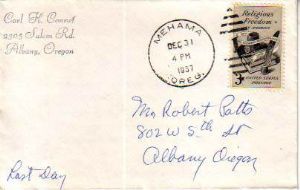 Carl H. Connet
2305 Salem Rd.
Albany, Oregon
MEHAMA
DEC 31
4 PM
1957
OREG.
Religious
Freedom
3¢
UNITED STATES
POSTAGE
Mr. Robert Potts
802 W 5th St
Albany Oregon
Last Day